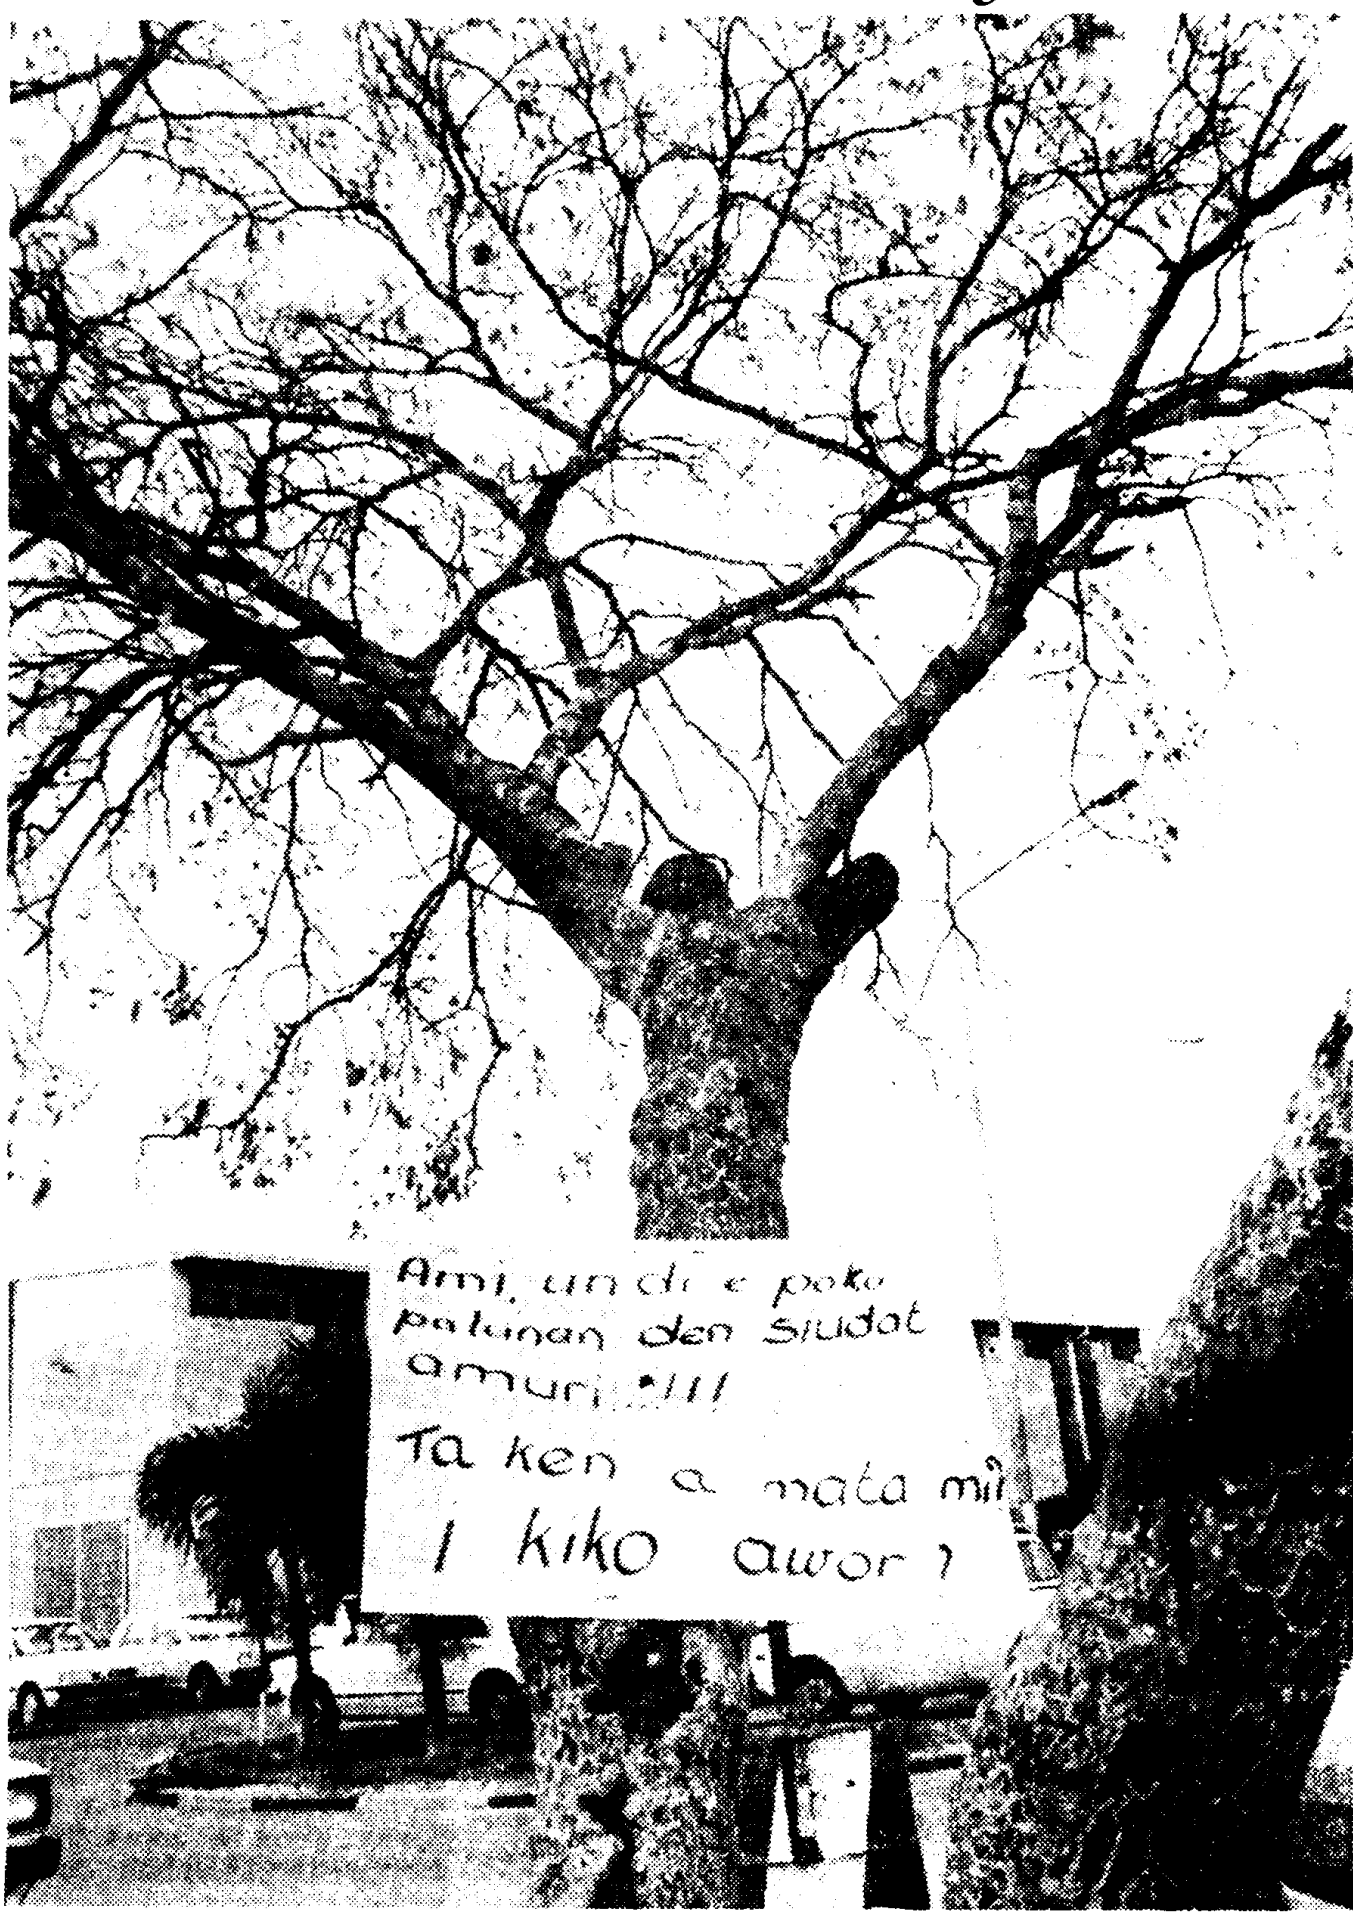 Ami, un di e poko
palunan den siudat
amuri...!!!
Ta ken a mata mi?
I kiko awor?